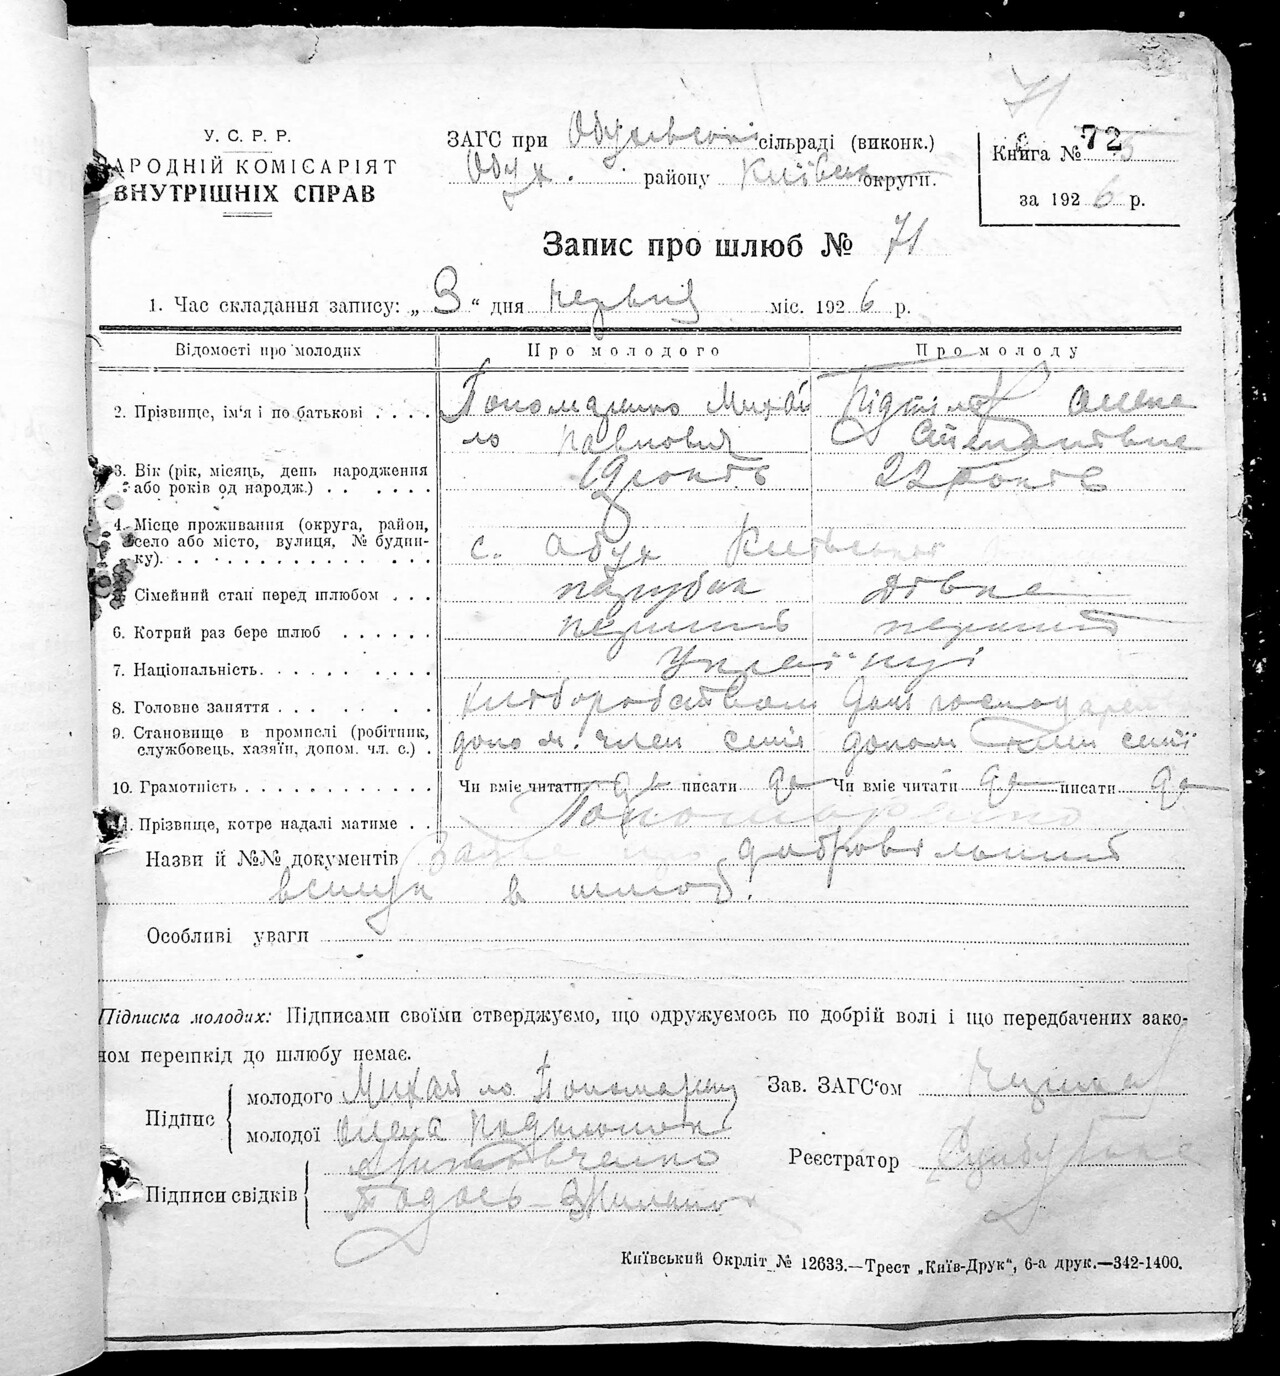 71
У. С. Р. Р.
НАРОДНІЙ КОМІСАРІЯТ
ВНУТРІШНІХ СПРАВ
ЗАГС при Обухівські сільраді (виконк.)
Обух. району Київськ округи.
Книга № 72
за 1926 р.
Запис про шлюб № 71
1. Час складання запису: „ 3 “ дня червня міс. 1926 р.
Відомості про молодих
Про молодого
Про молоду
2. Прізвище, ім'я і по батькові . . . .
Пономаренко Михай
ло Павлович
Олена
Степанівна
3. Вік (рік, місяць, день народження
або років од народж.) . . . . . .
19 років
22 років
4. Місце проживання (округа, район,
село або місто, вулиця, № будин-
ку). . . . . . . . . . . . . . .
с. Обух Київської
Сімейний стан перед шлюбом . . .
парубок
дівка
6. Котрий раз бере шлюб . . . . . .
перший
перший
7. Національність. . . . . . . . . .
Україн
8. Головне заняття . . . . . . .
хліборобством
дом господарст
9. Становище в промислі (робітник,
службовець, хазяїн, допом. чл. с.) .
допом. член сімї
допом член сімї
10. Грамотність . . . . . . . . . . . .
Чи вміє читати да писати да
Чи вміє читати да писати да
11. Прізвище, котре надалі матиме . .
Пономаренко
Назви й №№ документів Заява про добровільний
вступ в шлюб.
Особливі уваги
Підписка молодих: Підписами своїми стверджуємо, що одружуємось по добрій волі і що передбачених зако-
ном перешкід до шлюбу немає.
Підпис
молодого Михайло Пономаренко
молодої Олена
Підписи свідків
Тодось
Зав. ЗАГС'ом
Реєстратор
Київський Окрліт № 12633.—Трест „Київ-Друк“, 6-а друк.—342-1400.